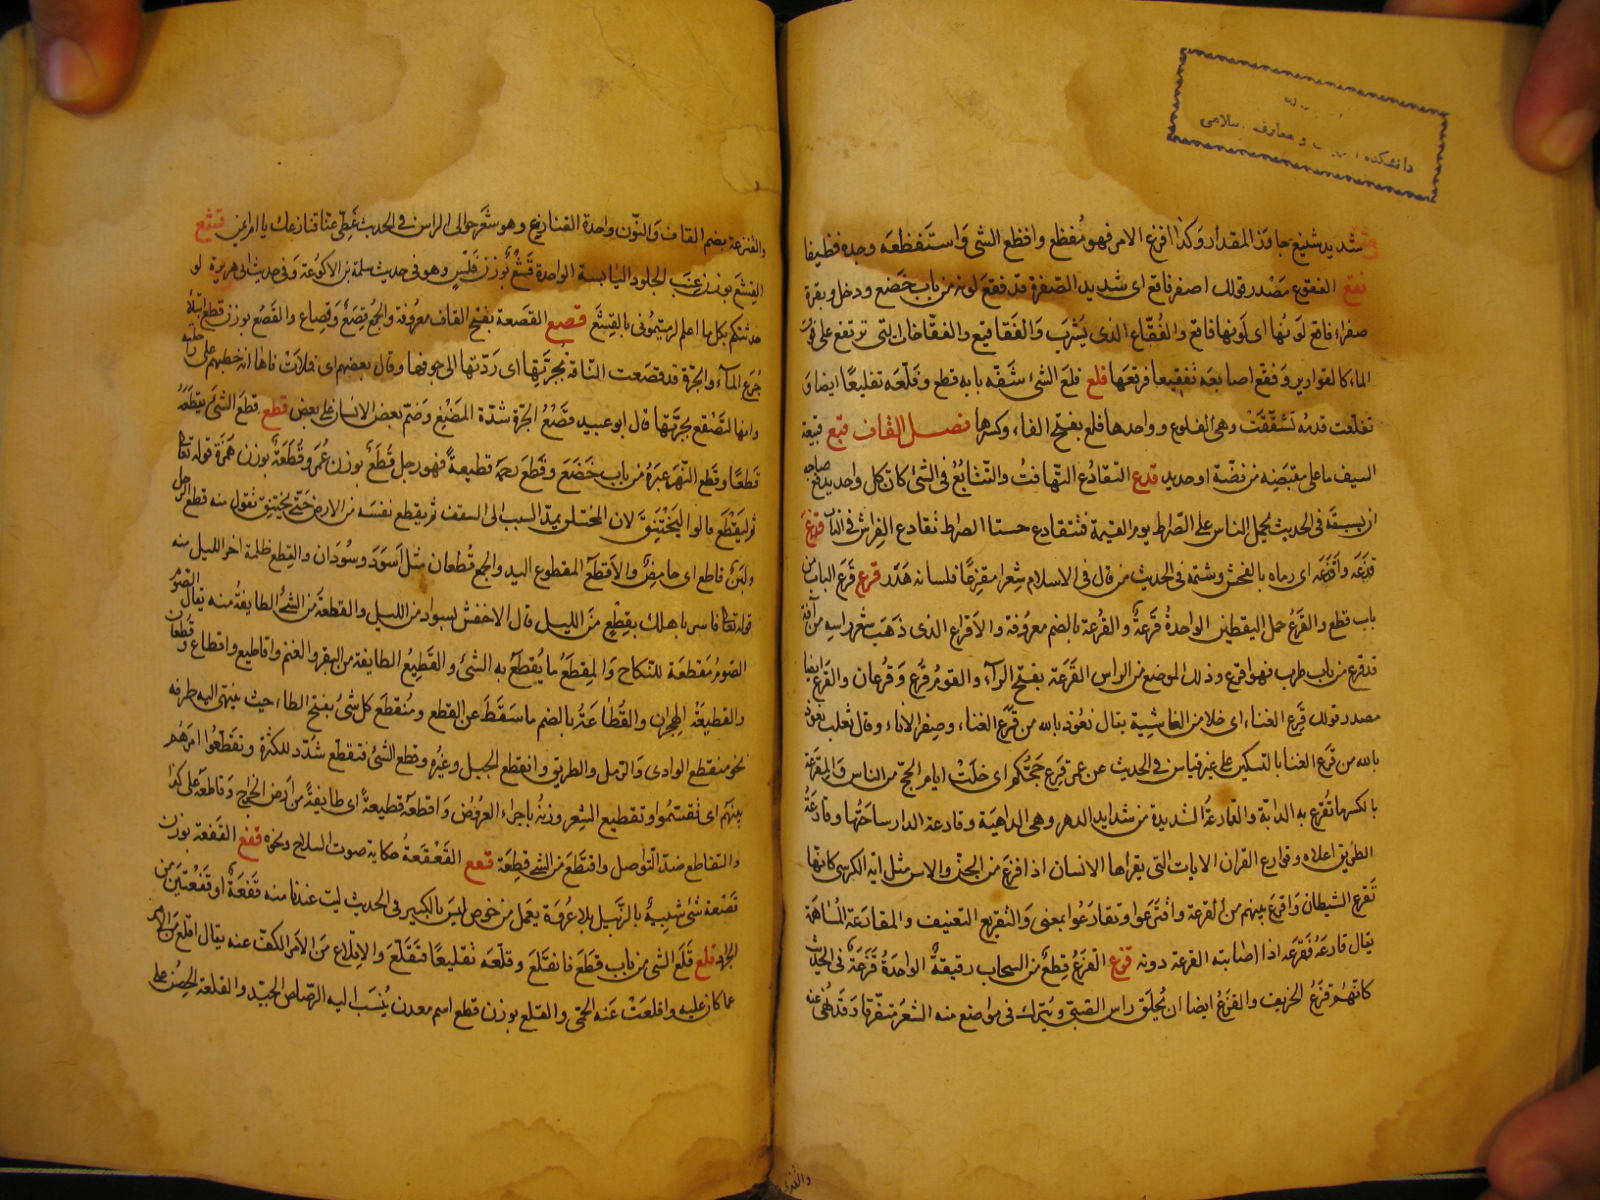 دانشكده و معارف اسلامى
شديد شنيع جاوز المقدار وكذا افزع الامر فهو مُفظع وافظع الشئ وَاستَفظَعَه وجده فظيعا
فقع الفقوع مصْدر قولك اصفر فاقع اى شديد الصّفرة قد فقع لونه من باب خضع ودخل وبقرة
صفراء فاقع لَونُها اى لونها فاقع والفُقّاع الذى يُشْرَب وَالفَقاقيع والفقّاخات التى ترتفع على فوق
الماء كالقوارير وَفقّع اصابعَه تَفقيعا فرقعَها فلع فلعَ الشئ شقّه بابه قطع وفلّعَه تفليعًا ايضا و
تفلّعت قدمُه تشقّقَتْ وهى الفلوع وواحدها فلع بفتح الفاء وكسرها فصل القاف قبع قبيعة
السيف ما على مقبَضِه من فضّة او حديد قدع التقادُع التّهافتُ والتّتابُعُ فى الشئ كان كل واحد يدفع صاحبه
ان يسبقه فى الحديث يُحمل الناس على الصّراط يوم القيمة فتتقادع جنبتا الصراط تقادع الفراش فى النار قذع
قذعَه وَاقذعَه اى رماه بالفحش وشتمه فى الحديث من قال فى الاسلام شِعرا مقذِعًا فلسانه هَدَر قرع قَرَع الباب من
باب قطع والقَرعُ حمل اليقطين الواحدةُ قرعَةٌ والقُرعة بالضم معروفة والاقرَع الذى ذهَبَ شعر راسِه من آفة
قد قرع من باب طرب فهو اقرع وذلك الموضع من الراس القَرَعَة بفتح الراء والقوم قُرعٌ وَقُرعان والقَرَع ايضا
مصدر قولك قرِع الفناء اى خلا من الغاشية يقال نعُوذ بالله من قَرَع الفناء وصفر الاناء وقال ثعلب نعوذ
بالله من قَرْع الفناء بالتسكين على غير قياس فى الحديث عن عمر قرع حجّكم اى خلَتْ ايام الحجّ من الناس وَالمِقرعَة
بالكسر ما تُقرع به الدابة والقارعةُ الشديدة من شدايد الدهر وهى الداهيَة وقارعة الدار ساحَتُها وقارعَةُ
الطريق اعلاه وقوارع القران الايات التى يقراها الانسان اذا افزع من الجنّ والانس مثل اية الكرسى كانها
تَقرع الشيطان وَاقرع بينهم من القرعة واقترَعوا وتقارَعُوا بمعنى والتّقريع التعنيف والمقارَعَة المُساهَمَة
يقال قارعَهُ فقرَعَه اذا اصابته القرعة دونه قزع القَزَعُ قِطَعٌ من السحاب رقيقةٌ الواحدةُ قَزَعَة فى الحديث
كانّهُم قزَعُ الخريف والقزعُ ايضا ان يُحلَق راس الصَبىّ ويُترك فى مواضع منه الشَعَر متفرّقا وَقد نُهى عنه
والقنزعة بضم القاف وَالنّون واحدة القنازع وهو شعَر حوالى الراس فى الحديث غَطّى عنّا قنازعك يا ام ايمن قشع
القِشَع بوزن عِنَب الجلود اليَابسة الواحدة قَشْعٌ بوزن فَلْس وهو فى حديث سلمة بن الاكوع وفى حديث ابى هريرة لو
حدثتكم بكل ما اعلم لرميتمونى بالقِشَع قصع القَصعة بفتح القاف معروفة والجمع قِصَعٌ وَقِصاع والقَصْع بوزن قطع ابتلاع
جُرَع الماء والجرّة قد قصَعت النّاقة بجرّتها اى رَدّتها الى جوفها وقال بعضهم اى فلات فاها انه خطبهم على راحلته
وانها لتَقصَع بجرّتها قال ابو عبيد قَصْعُ الجرّة شدّة المَضْغ وَضمّ بعض الاسنان على بعض قطع قطَع الشئ يقطَعُه
قَطعًا وقطَع النّهر عبَرَهُ من باب خضَعَ وقَطعَ رحمَه قطيعةً فهو رجل قُطَعٌ بوزن عُمَر وقُطَعَةٌ بوزن هُمَزة قوله تعالى
ثم ليَقطَع قالوا ليَختَنِقْ لان المختنق يمدّ السبب الى السقف ثم يقطع نفسَه من الارض حتّى يختنِق تقول منه قطع الرجل
ولبنٌ قاطع اى حامض والاَقطعُ المقطوع اليد والجمع قُطعان مثل اَسوَد وسُودَان والقِطع ظلمة اخر الليل منه
قوله تعالى فاسر باهلك بقِطعٍ مَن الليل قال الاخفش بسواد من الليل والقطعةُ من الشئ الطايفةُ منه يقال الصوم
الصّومُ مَقطعَة للنكاح وَالمِقطَعُ ما يُقطَعُ به الشئ والقَطِيعُ الطايفة من البقر والغنم واقاطيع واقطاع وقُطعان
والقطيعَةُ الهِجران والقُطاعَةُ بالضم ما سَقَطَ عن القطع ومُنقطَع كل شئ بفتح الطاء حيث ينتهى اليه طرفه
نحو منقطع الوادى وَالرّمل والطريق وانقطع الحبل وغيرُه وقطع الشئ فتقطّع شُدّد للكثرة وتقَطّعُوا امرَهُم
بينَهم اى تقسّمُوا وتقطيع الشِعر وزنُه باجزاء العروض وَاقطعَه قطيعةً اى طايفةً من ارض الخراج وَقاطعَه على كذا
والتقاطع ضدّ التّواصل واقتطَعَ من الشئ قِطعَة قعع القَعْقَعَةُ حكاية صوت السلاح ونحوه قفع القَفعَة بوزن
قَصْعة شئ شبيهٌ بالزّنبيل بلا عُروَة يعمل من خوص ليس بالكبير فى الحديث ليت عندنا منه قَفعَةٌ او قَفْعَتَين من
الجراد قلع قَلَعَ الشى من باب قَطَعَ فانقلَعَ وقلّعَه تقليعًا فتَقَلّعَ والاِقلاع مَن الاَمر الكفّ عنه يقال اقلَعَ من الامر
عما كان عليه واقلعَتْ عَنه الحمّى والقلع بوزن قطع اسم معدن يُنسَب اليه الرّصاص الجيّد والقلعة الحِصْن على
والقنزعة